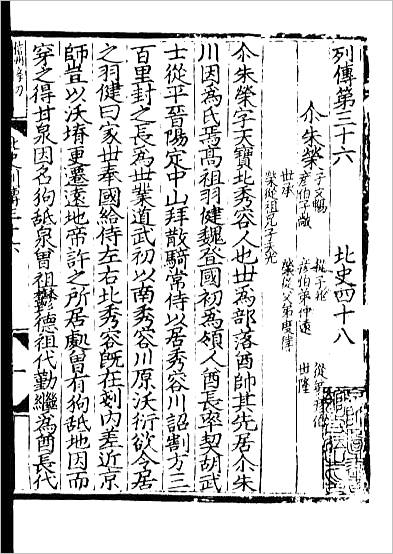 列傳第三十六 北史四十八
尒朱榮 子文暢 從子兆 從弟彥伯
彥伯子敞 彥伯弟仲遠 世隆
世承 榮從父弟度律
榮從祖兄子天光
尒朱榮字天寶北秀容人也丗爲部落酋帥其先居尒朱
川因爲氏焉髙祖羽健魏登國初爲領人酋長率契胡武
士從平晉陽定中山拜散騎常侍以居秀容川詔割方三
百里封之長爲丗業道武初以南秀容川原沃衍欲令居
之羽健曰家丗奉國給侍左右北秀容旣在剗内差近京
師豈以沃塉更遷遠地帝許之所居處曽有狗舐地因而
穿之得甘泉因名狗舐泉曽祖鬱德祖代勤繼爲酋長代